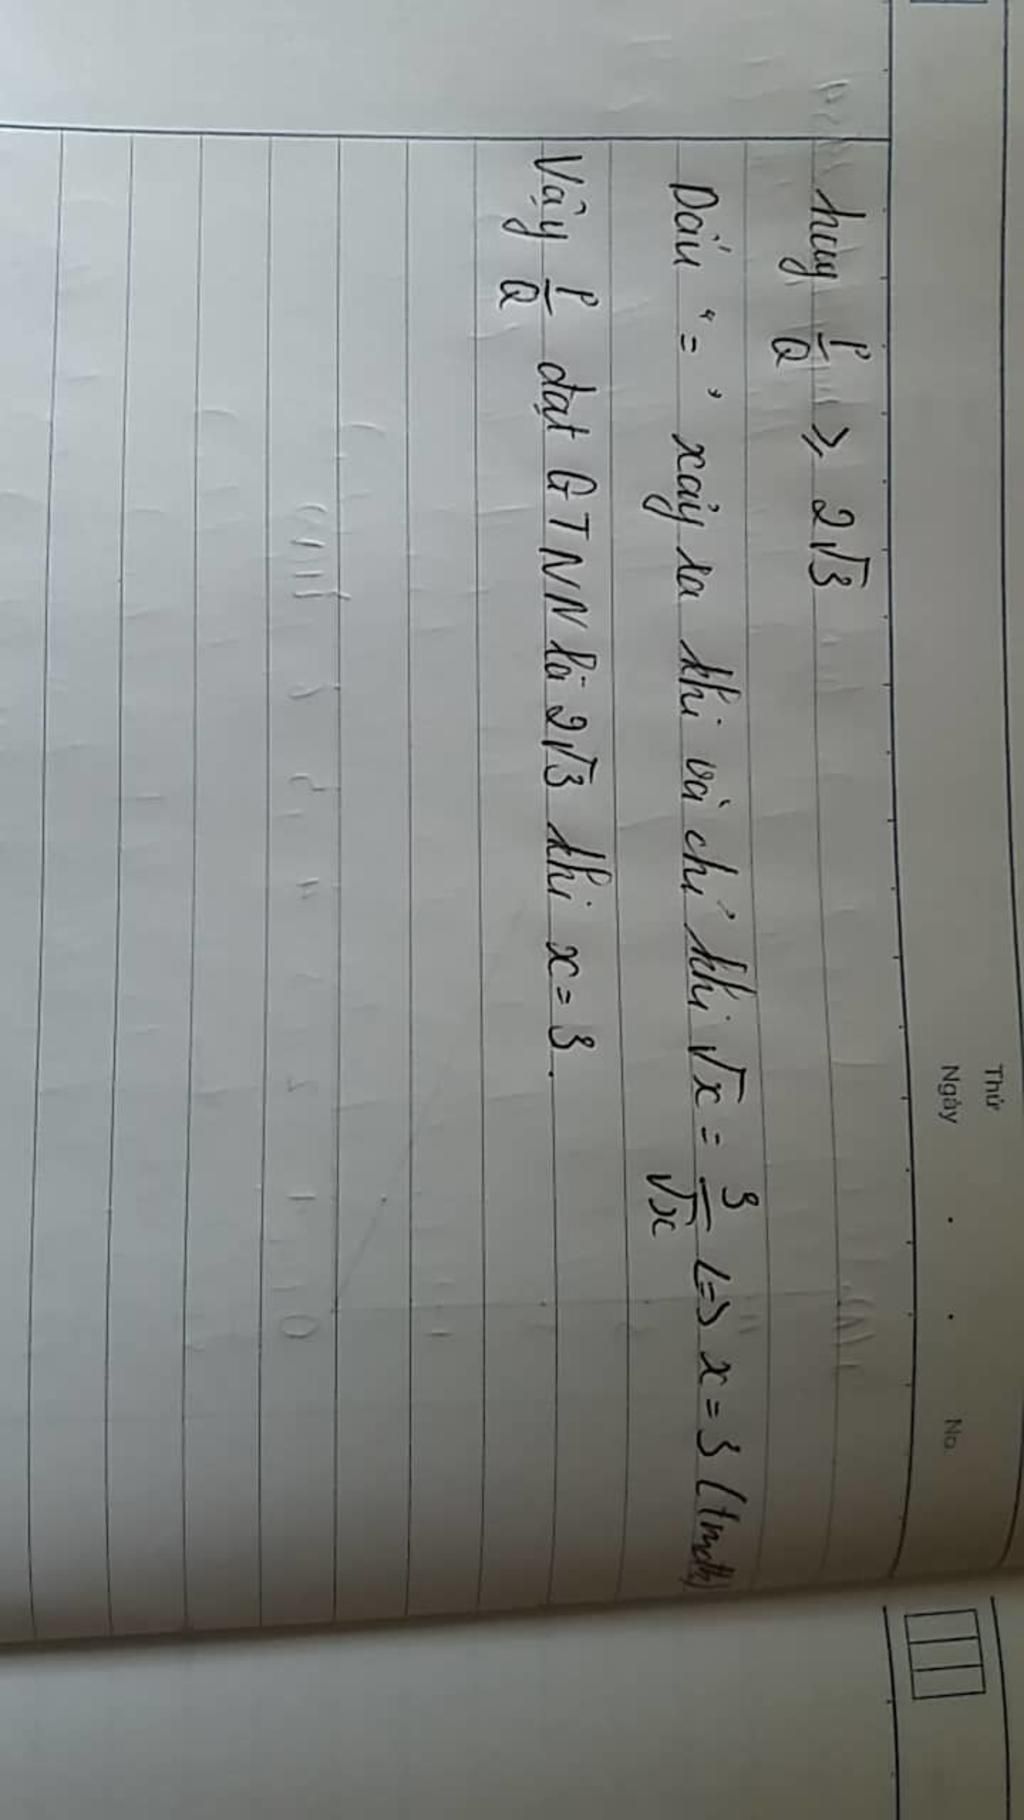 Thứ
Ngày . . No.
hay P/Q ≥ 2√3
Dấu "=" xảy ra khi và chỉ khi √x = 3/√x <=> x = 3 (tmđk)
Vậy P/Q đạt GTNN là 2√3 khi x = 3.